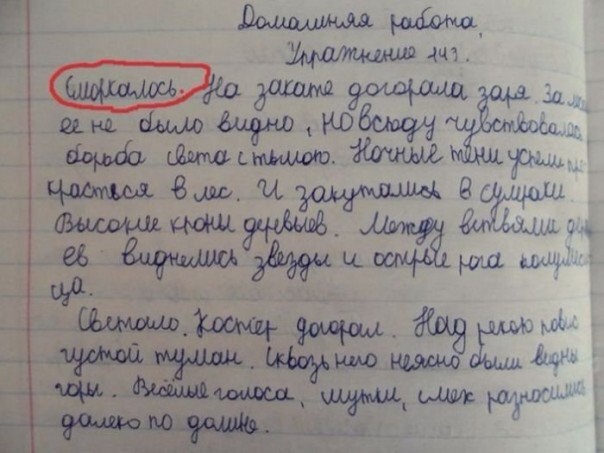 Домашняя работа.
Упражнение 143.
Сморкалось. На закате догорала заря. За
ее не было видно, но всюду чувствовалась
борьба света с тьмою. Ночные тени успели
красться в лес. И закутались в сумраки.
Высокие кроны деревьев. Между ветвями
ев виднелись звезды и острые рога полумеся
ца.
Светало. Костёр догорал. Над рекою повис
густой туман. Сквозь него неясно были видны
горы. Весёлые голоса, шутки, смех разносились
далеко по долине.